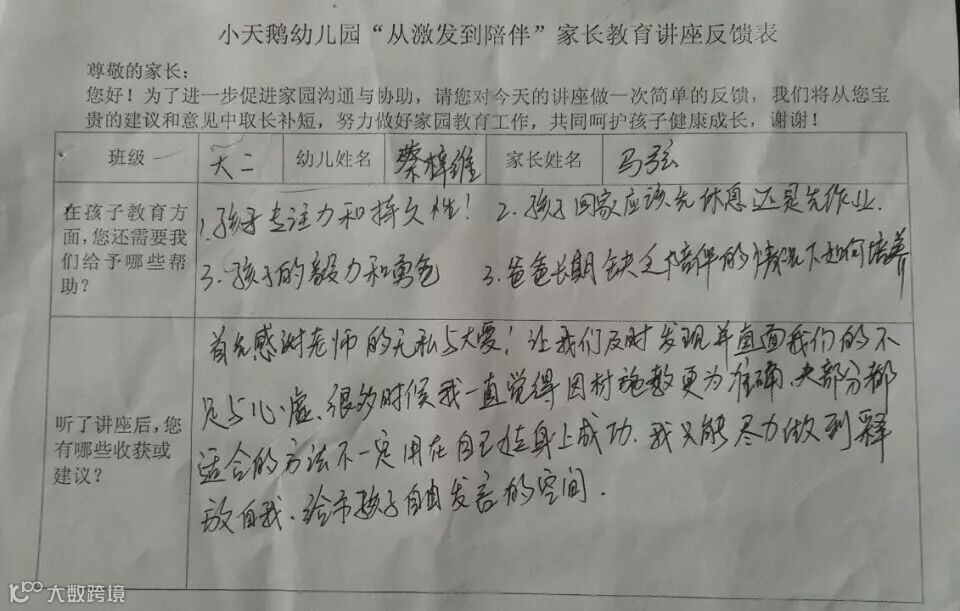 小天鹅幼儿园“从激发到陪伴”家长教育讲座反馈表
尊敬的家长：
您好！为了进一步促进家园沟通与协助，请您对今天的讲座做一次简单的反馈，我们将从您宝
贵的建议和意见中取长补短，努力做好家园教育工作，共同呵护孩子健康成长，谢谢！
班级 大二 幼儿姓名 蔡梓维 家长姓名 马弦
在孩子教育方
面，您还需要我
们给予哪些帮
助？
1.孩子专注力和持久性！ 2.孩子回家应该先休息还是先作业.
3.孩子的毅力和勇色 3.爸爸长期缺乏陪伴的情况下如何培养
听了讲座后，您
有哪些收获或
建议？
首先感谢老师的无私与大爱！让我们及时发现并直面我们的不
足与心虚、很多时候我一直觉得因材施教更为准确.大部分都
适合的方法不一定用在自己娃身上成功.我只能尽力做到释
放自我.给予孩子自由发言的空间.
大数跨境